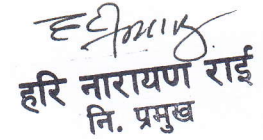 हरि नारायण राई
नि. प्रमुख